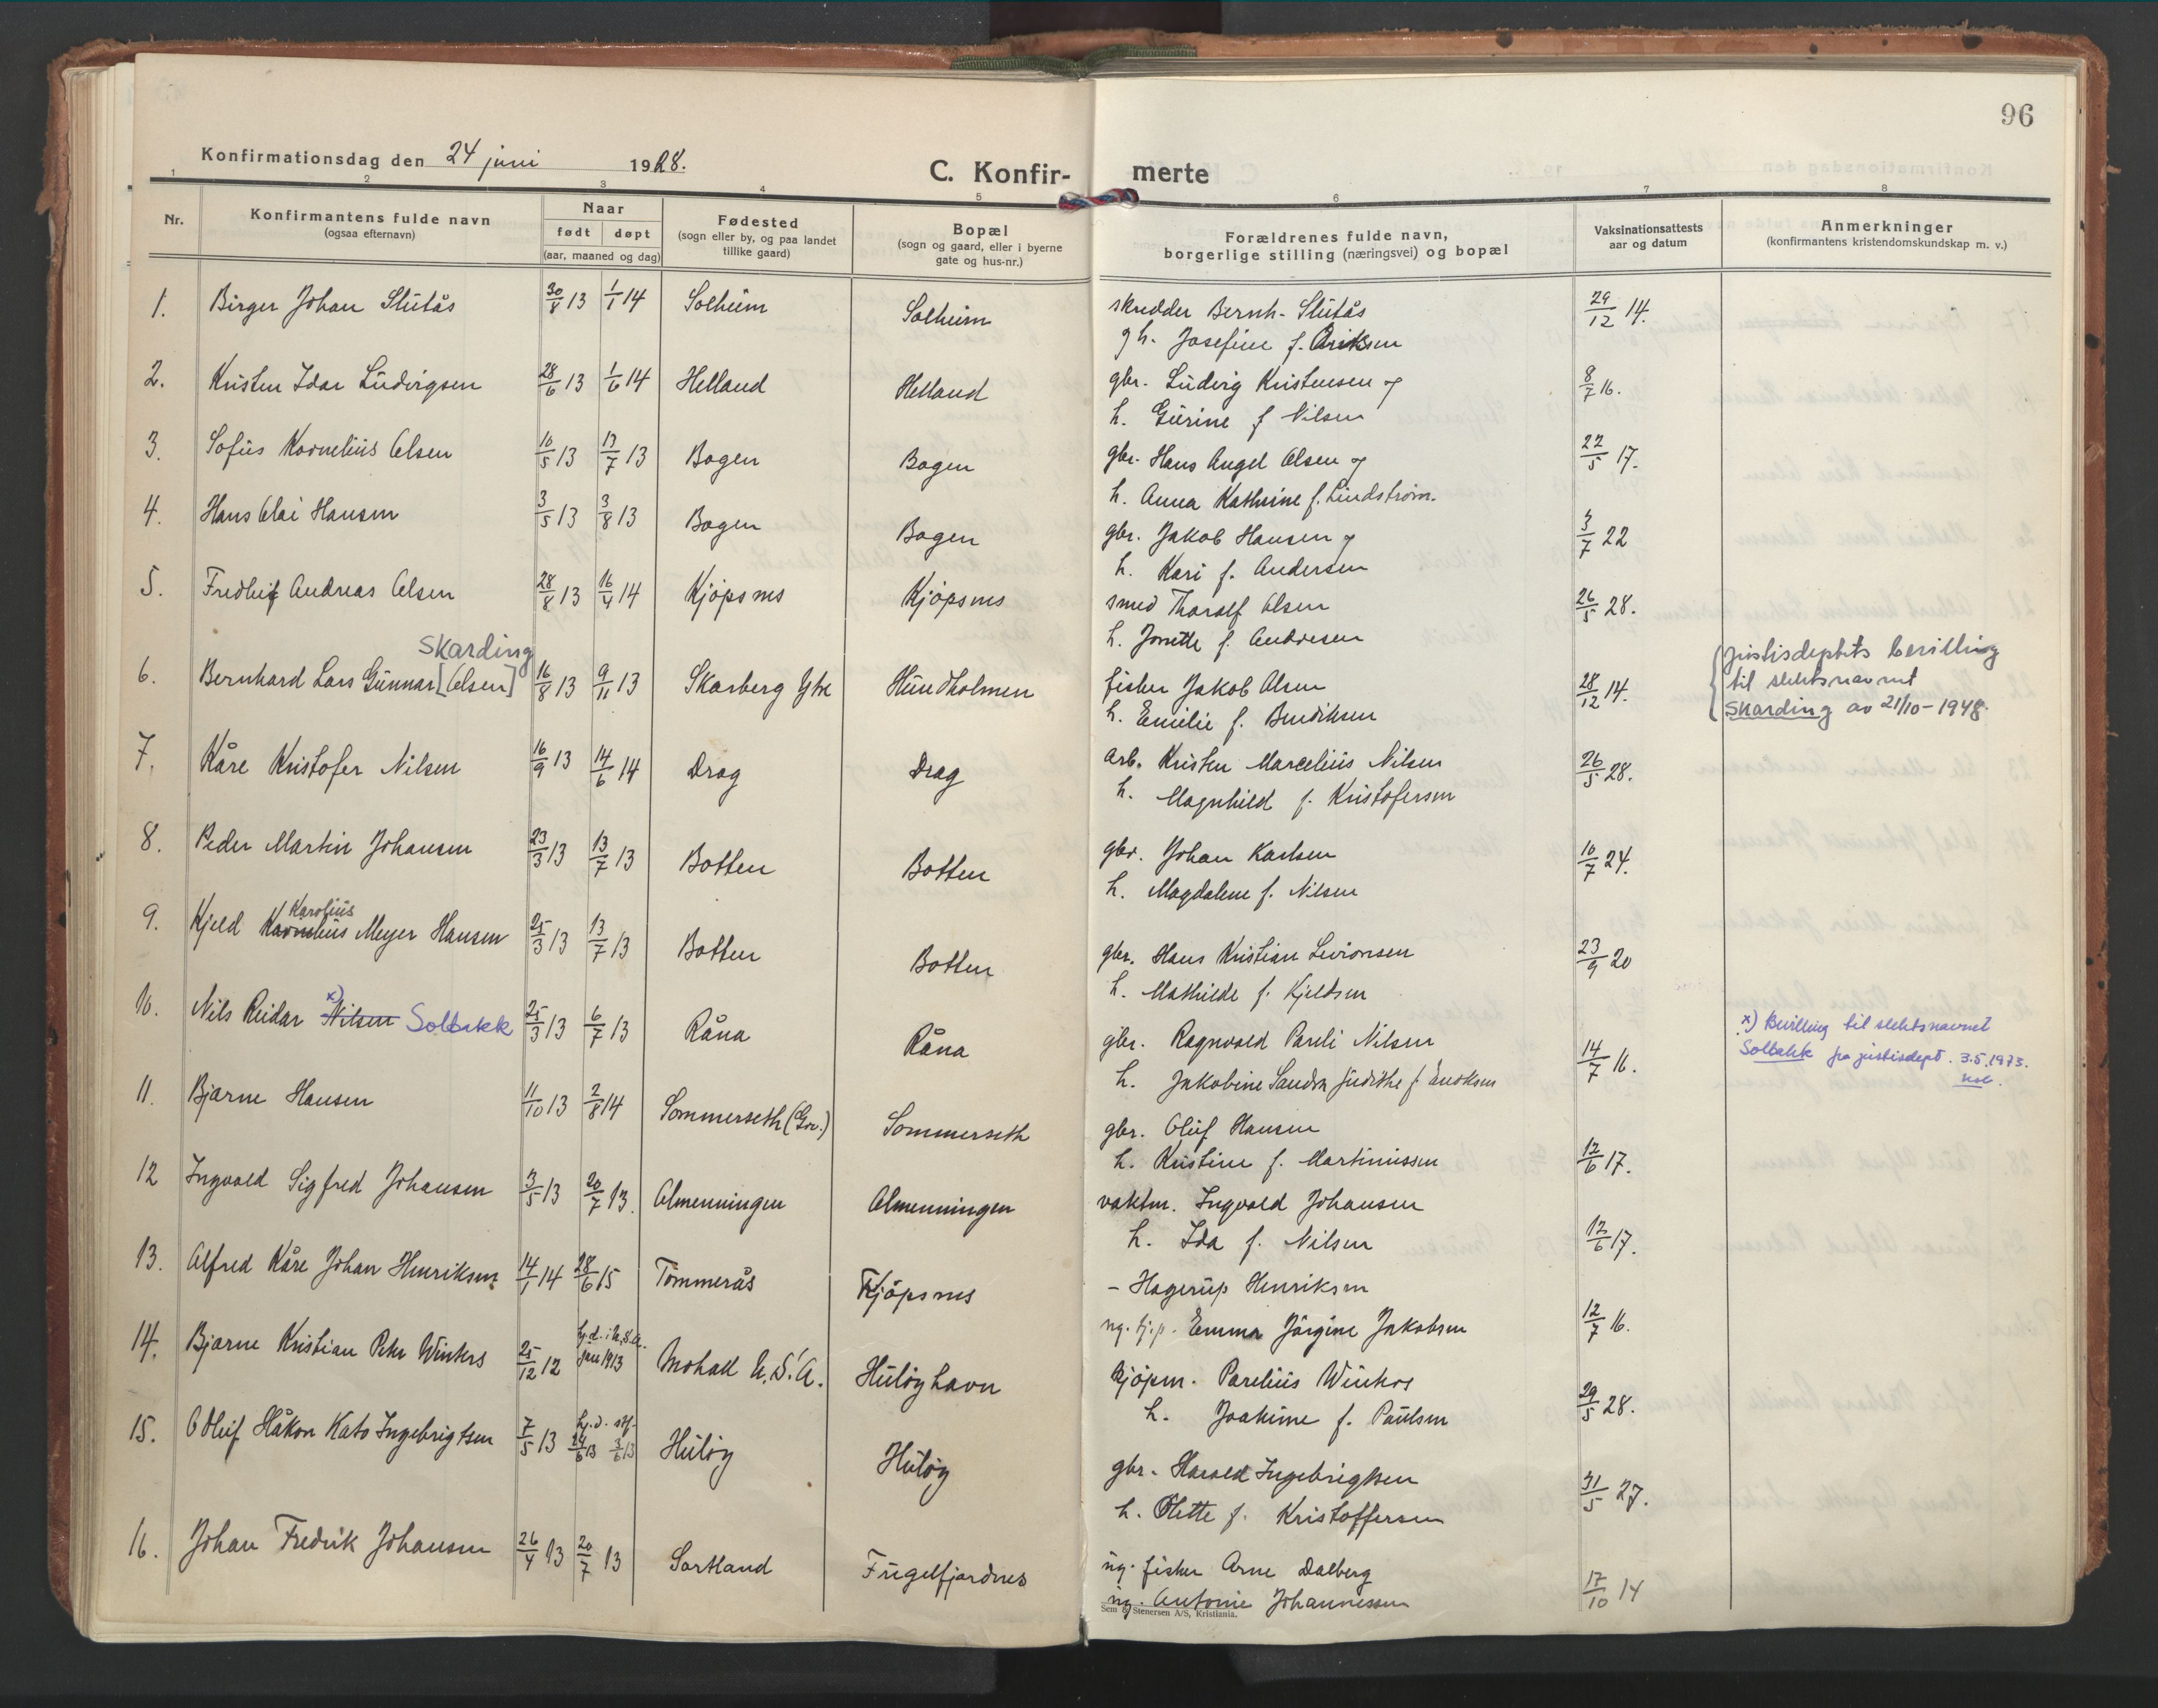 96
Konfirmationsdag den 24 juni 1928.
C. Konfir- merte
1 2 3 4 5 6 7 8
Nr.
Konfirmantens fulde navn
(ogsaa efternavn)
Naar
født døpt
(aar, maaned og dag)
Fødested
(sogn eller by, og paa landet
tillike gaard)
Bopæl
(sogn og gaard, eller i byerne
gate og hus-nr.)
Forældrenes fulde navn,
borgerlige stilling (næringsvei) og bopæl
Vaksinationsattests
aar og datum
Anmerkninger
(konfirmantens kristendomskundskap m. v.)
1. Birger Johan Slutås 30/8 13 1/1 14 Solheim Solheim skredder Bernh. Slutås 29/12 14.
g h. Josefine f.
2. Kristen Idar Ludvigsen 28/6 13 1/6 14 Helland Helland gbr. Ludvig Kristensen og 8/7 16.
h. Gurine f Nilsen
3. Sofus Kornelius Olsen 10/5 13 13/7 13 Bogen Bogen gbr. Hans Angel Olsen og 22/5 17.
h. Anna Kathrine f. Lindstrøm.
4. Hans Olai Hansen 3/5 13 3/8 13 Bogen Bogen gbr. Jakob Hansen og 3/7 22
h. Kari f. Andersen
5. Fredleif Andreas Olsen 28/8 13 16/4 14 Kjøpsnes Kjøpsnes smed Tharalf Olsen 26/5 28.
h. Jonette f. Andresen
Skarding
6. Bernhard Lars Gunnar [Olsen] 16/8 13 9/11 13 Skarberg Ytre Hundholmen fisker Jakob Olsen 28/12 14.
h. Emilie f. Bendiksen
Justisdeptets bevilling
til slektsnavnet
Skarding av 21/10-1948.
7. Kåre Kristofer Nilsen 16/9 13 14/6 14 Drag Drag arb. Kristen Marcelius Nilsen 26/5 28.
h. Magnhild f. Kristofersen
8. Peder Martin Johansen 23/3 13 13/7 13 Botten Botten gbr. Johan Karlsen 10/7 24.
h. Magdalene f. Nilsen
Karolius
9. Kjeld Kornelius Meyer Hansen 25/3 13 13/7 13 Botten Botten gbr. Hans Kristian Levionsen 23/9 20
h. Mathilde f. Kjeldsen
10. Nils Reidar x) Nilsen Solbakk 25/3 13 6/7 13 Råna Råna gbr. Ragnvald Pareli Nilsen 14/7 16.
h. Jakobine Sandra Judithe f. Enoksen
x) Bevilling til slektsnavnet
Solbakk fra justisdept. 3.5.1973.
11. Bjarne Hansen 11/10 13 2/8 14 Sommerseth (Grv.) Sommerseth gbr. Oluf Hansen 12/6 17.
h. Kristine f. Martinussen
12 Ingvald Sigfred Johansen 3/5 13 20/7 13. Almenningen Almenningen vaktm. Ingvald Johansen 12/6 17.
h. Ida f. Nilsen
13. Alfred Kåre Johan Henriksen 14/1 14 28/6 15 Tømmerås Kjøpsnes - Hagerup Henriksen 12/7 16.
ug. tj.p. Emma Jørgine Jakobsen
14. Bjarne Kristian Peter Winters 25/12 12 hj.d. i U.S.A. juni 1913 Mohall U.S.A. Huløyhavn kjøpm. Parelius Winters 29/5 28.
h. Joakime f. Paulsen
15. Odleif Håkon Kato Ingebrigtsen 7/5 13 hj.d. stf. 24/6 13 3/6 13 Huløy Huløy gbr. Harald Ingebrigtsen 31/5 27.
h. Olette f. Kristoffersen
16. Johan Fredrik Johansen 26/4 13 20/7 13 Sortland Fugelfjordnes ug. fisker Arne Dalberg 17/10 14
ug. Antonie Johannessen
Sem & Stenersen A/S, Kristiania.